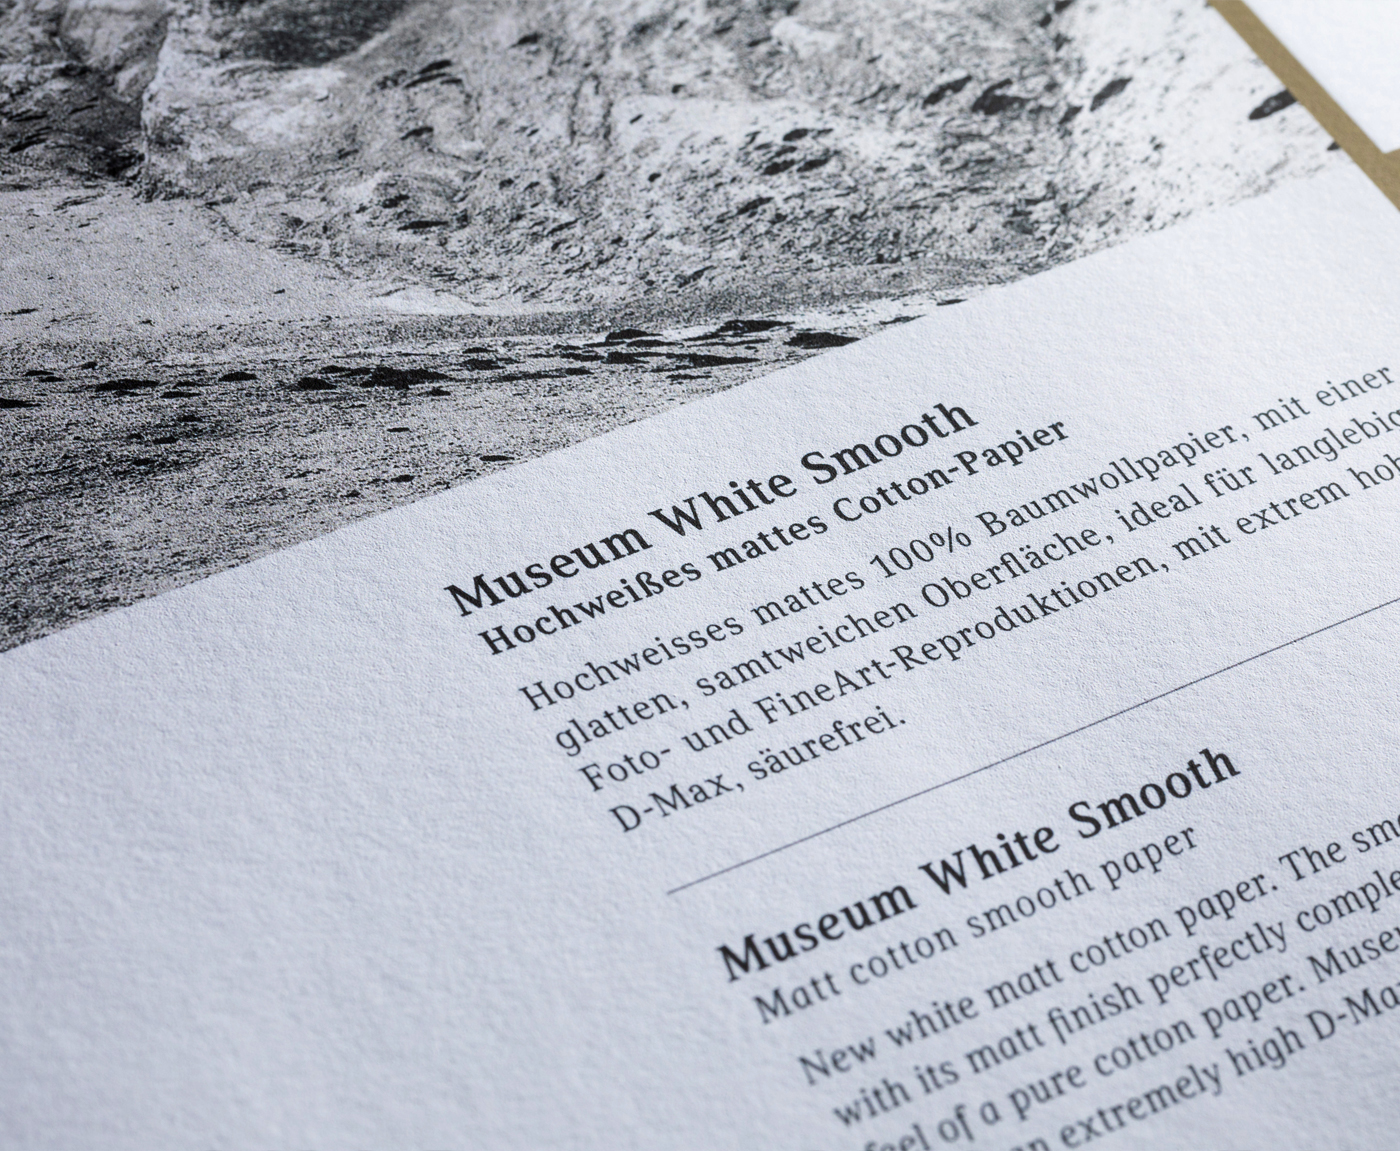 Museum White Smooth
Hochweißes mattes Cotton-Papier
Hochweisses mattes 100% Baumwollpapier, mit einer
glatten, samtweichen Oberfläche, ideal für
Foto- und FineArt-Reproduktionen, mit extrem
D-Max, säurefrei.
Museum White Smooth
Matt cotton smooth paper
New white matt cotton paper. The
with its matt finish perfectly
feel of a pure cotton paper.
extremely high